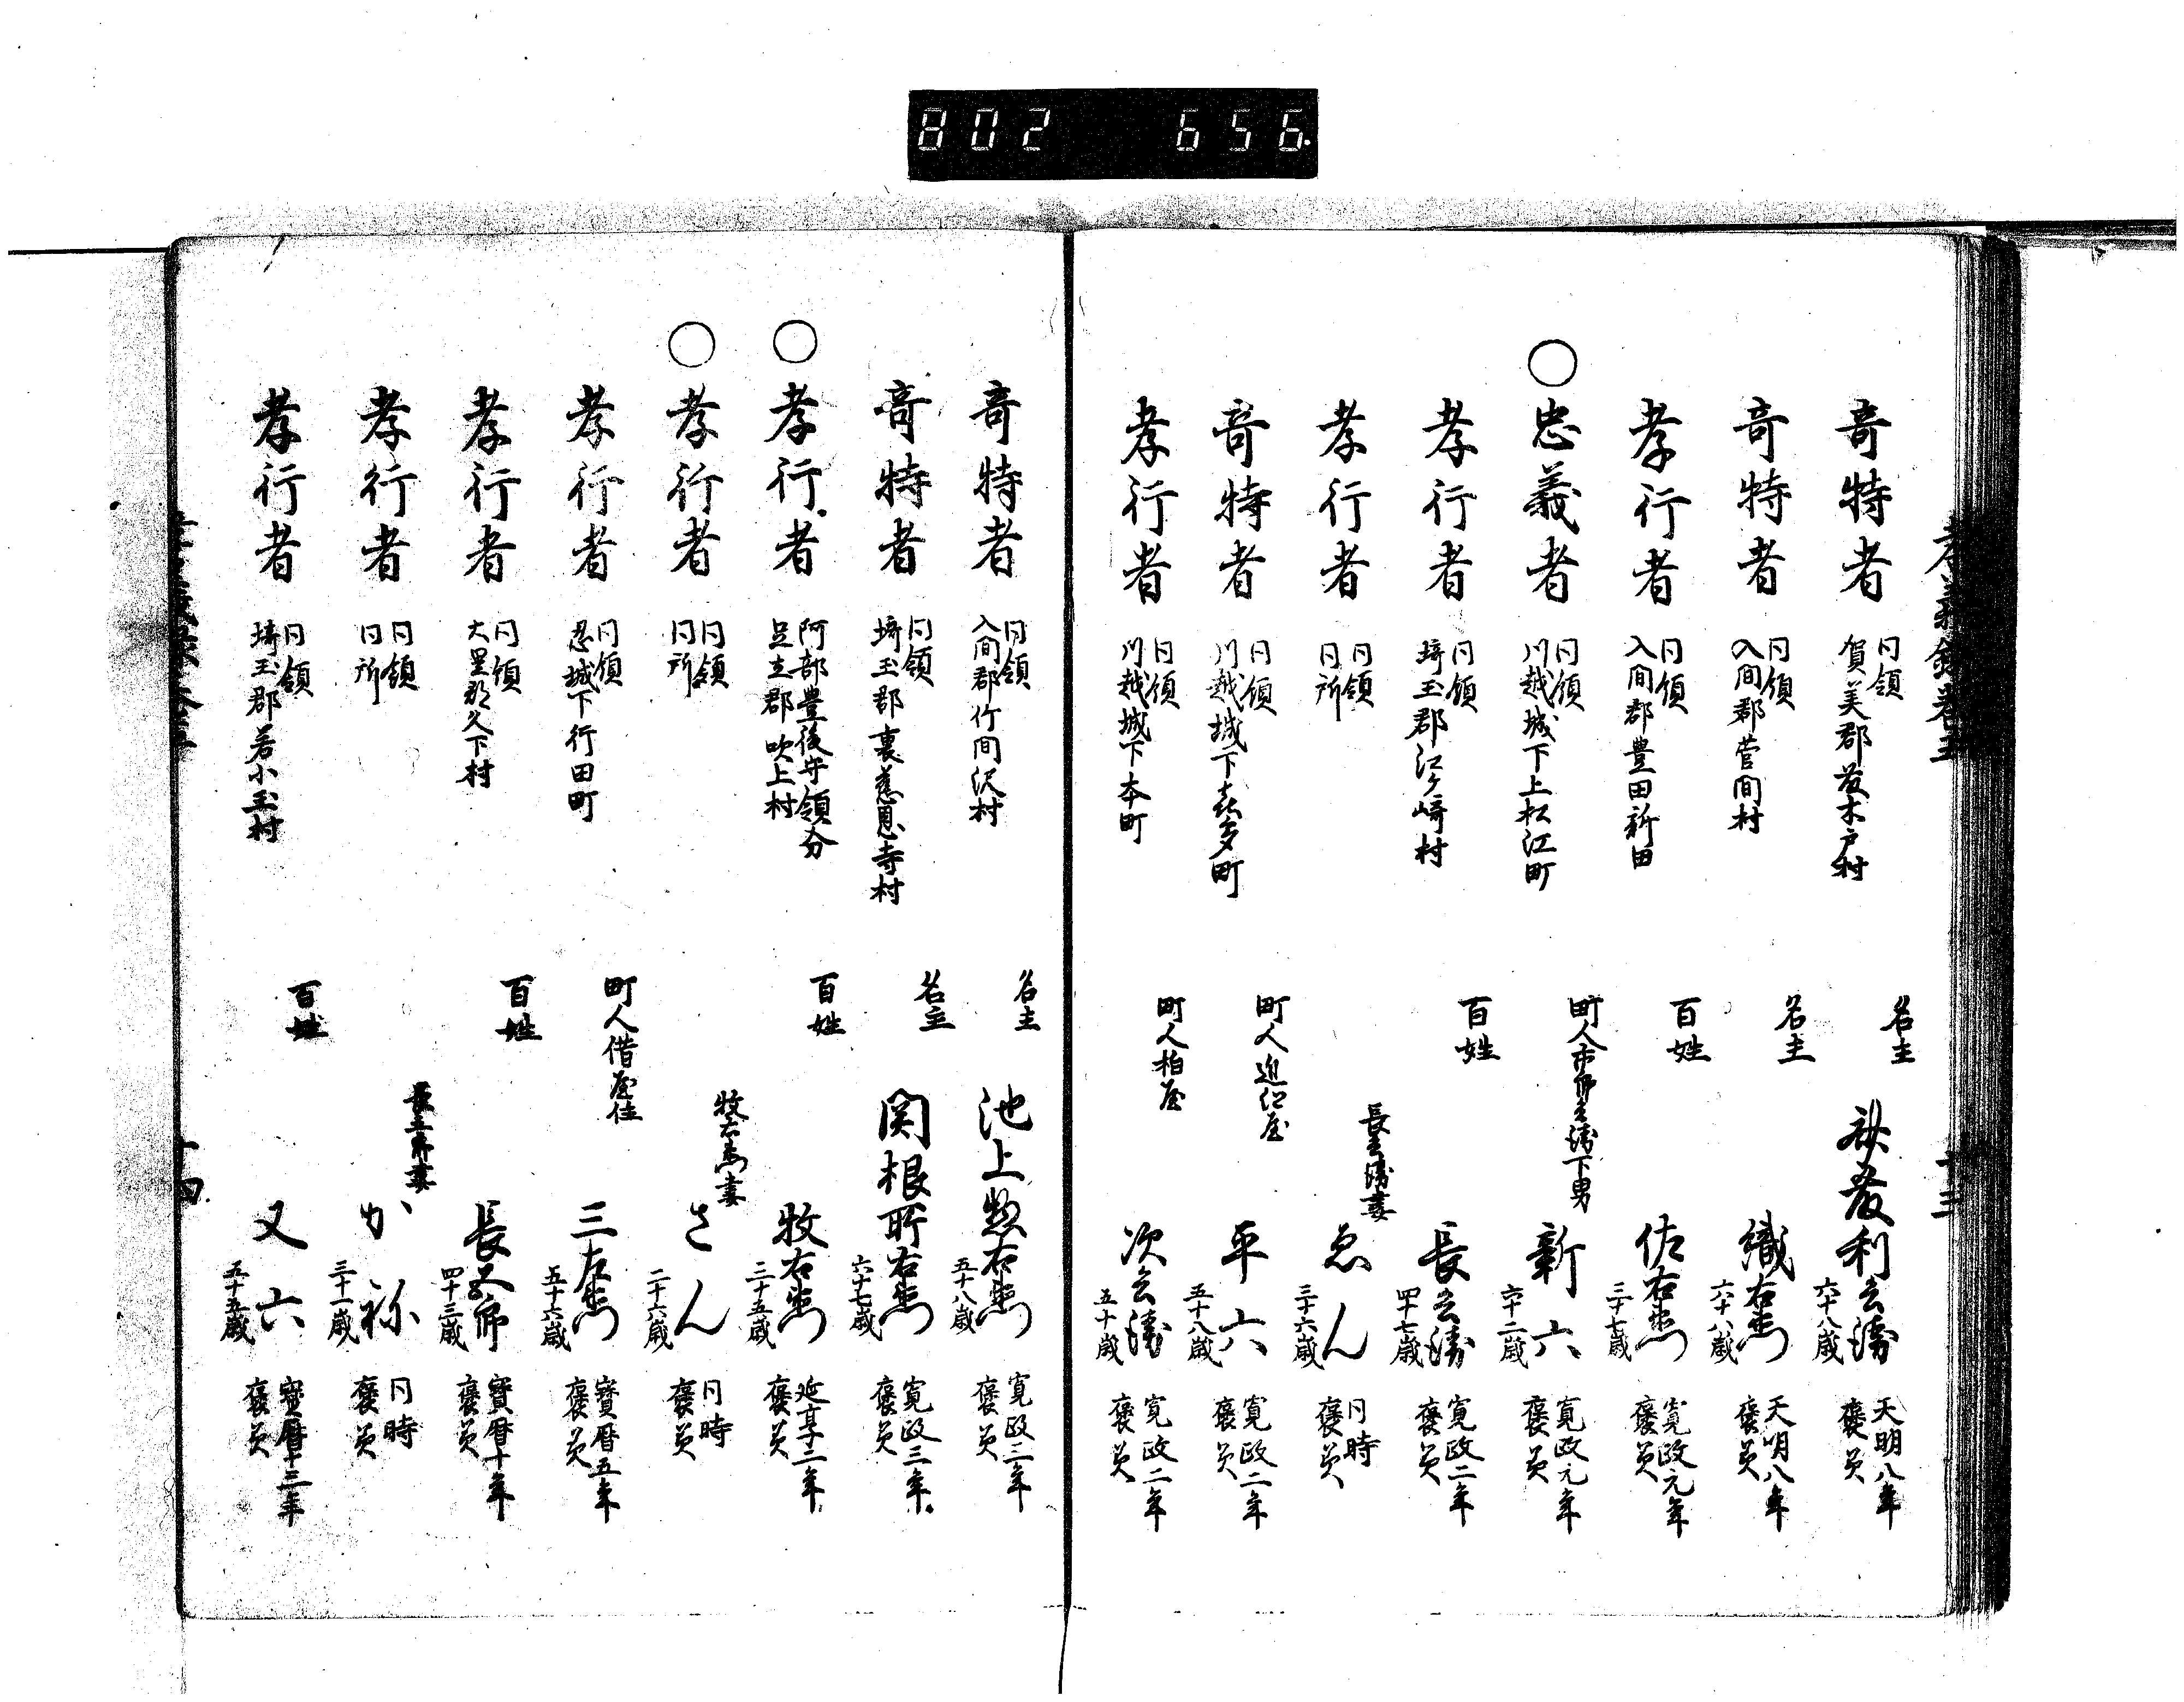 802 656
奇特者
同領
賀美郡
木戸村
名主
利兵衛
六十八歳
天明八年
褒美
奇特者
同領
入間郡菅間村
名主
織右衛門
六十八歳
天明八年
褒美
孝行者
同領
入間郡豊田新田
百姓
佐右衛門
三十七歳
寛政元年
褒美
○
忠義者
同領
川越城下上松江町
町人市郎兵衛下男
新六
六十二歳
寛政元年
褒美
孝行者
同領
埼玉郡江ケ崎村
百姓
長兵衛
四十七歳
寛政二年
褒美
孝行者
同領
同所
長兵衛妻
ゑん
三十六歳
同時
褒美
奇特者
同領
川越城下喜多町
町人近江屋
平六
五十八歳
寛政二年
褒美
孝行者
同領
川越城下本町
町人柏屋
次兵衛
五十歳
寛政二年
褒美
奇特者
同領
入間郡竹間沢村
名主
池上惣右衛門
五十八歳
寛政三年
褒美
奇特者
同領
埼玉郡裏慈恩寺村
名主
関根所右衛門
六十七歳
寛政三年
褒美
○
孝行者
阿部豊後守領分
足立郡吹上村
百姓
牧右衛門
三十五歳
延享二年
褒美
○
孝行者
同領
同所
牧右衛門妻
さん
二十六歳
同時
褒美
孝行者
同領
忍城下行田町
町人借屋住
三左衛門
五十六歳
寶暦五年
褒美
孝行者
同領
大里郡久下村
百姓
長五郎
四十三歳
寶暦十年
褒美
孝行者
同領
同所
長五郎妻
か祢
三十一歳
同時
褒美
孝行者
同領
埼玉郡若小玉村
百姓
又六
五十五歳
寶暦十三年
褒美